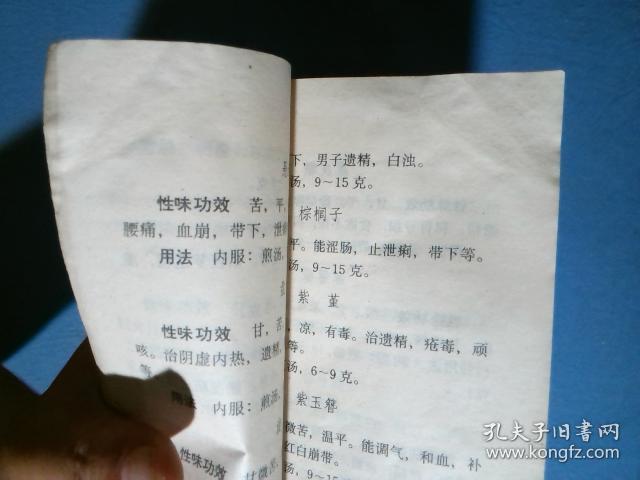 性味功效 苦，平，
腰痛，血崩，带下，泄
用法 内服：煎汤，
性味功效 甘，苦，
咳。治阴虚内热，遗精，
等
用法 内服：煎汤，
性味功效 甘微苦，
下，男子遗精，白浊。
汤，9～15克。
棕榈子
平。能涩肠，止泄痢，带下等。
汤，9～15克。
紫堇
，凉，有毒。治遗精，疮毒，顽
等。
汤，6～9克。
紫玉簪
微苦，温平。能调气，和血，补
红白崩带。
汤，9～15
孔夫子旧书网
kongfz.com